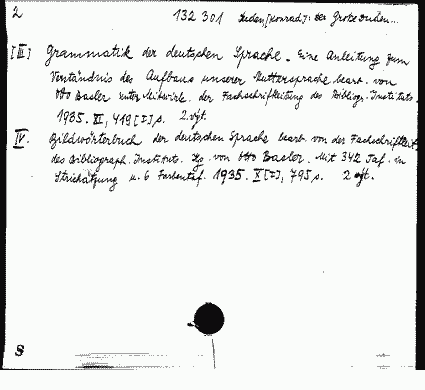 2 132 301 Duden, [Konrad]: Der Grosse Duden...
[III] Grammatik der deutschen Sprache. Eine Anleitung zum
Verständnis des Aufbaus unserer Muttersprache bearb. von
Otto Basler unter Mitwirk. der Fachschriftleitung des Bibliogr. Instituts.
1935. VI, 419 [I] s. 2. vyt.
IV. Bildwörterbuch der deutschen Sprache bearb. von der Fachschriftleit.
des Bibliograph. Instituts. Hg. von Otto Basler. Mit 342 Taf. in
Strichätzung u. 6 Farbentaf. 1935. X [I], 795 s. 2 vyt.
S